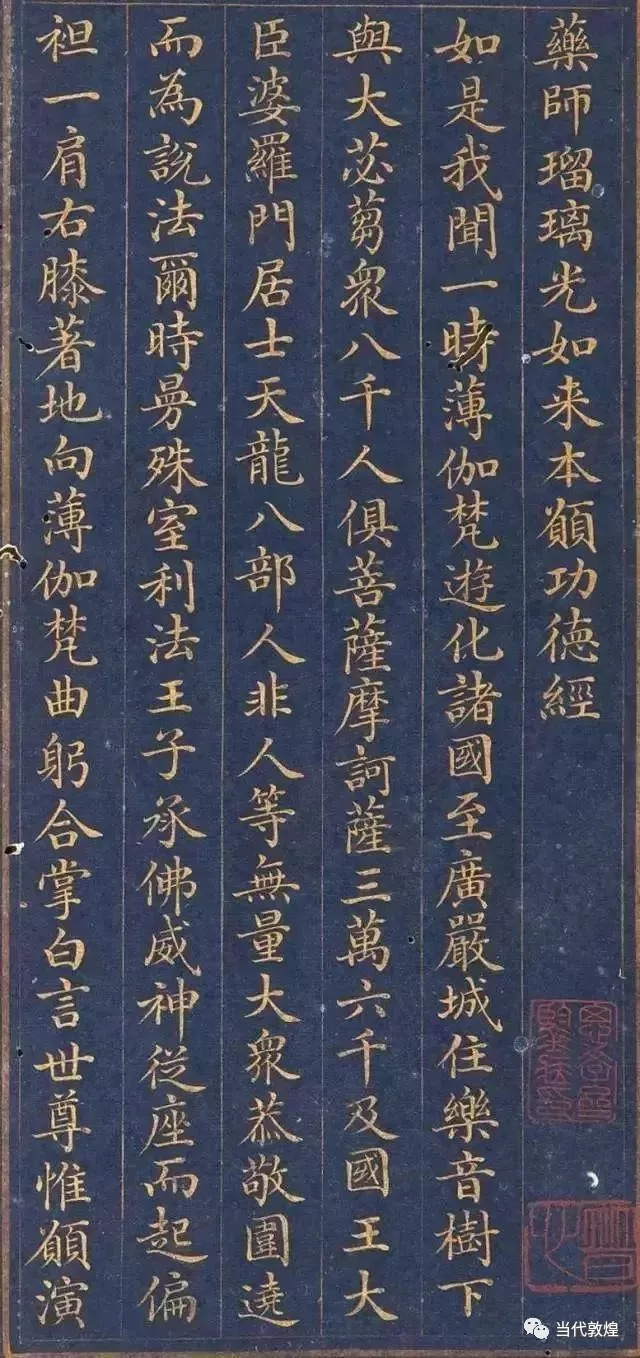 藥師瑠璃光如来本願功德經
如是我聞一時薄伽梵遊化諸國至廣嚴城住樂音樹下
與大苾蒭衆八千人俱菩薩摩訶薩三萬六千及國王大
臣婆羅門居士天龍八部人非人等無量大衆恭敬圍遶
而為說法爾時曼殊室利法王子承佛威神從座而起偏
袒一肩右膝著地向薄伽梵曲躬合掌白言世尊惟願演
当代敦煌